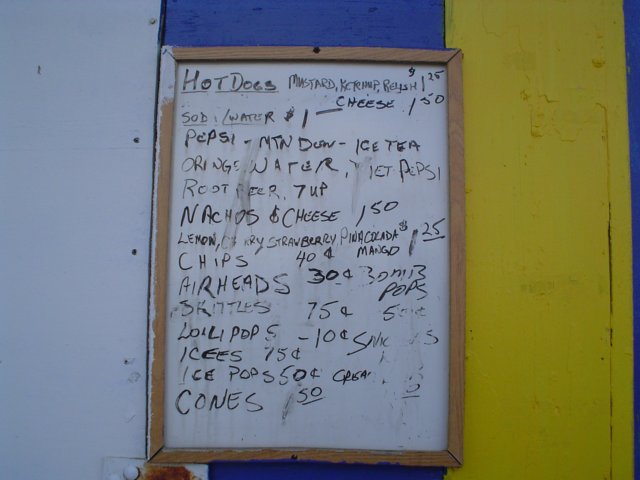 HOT DOGS MUSTARD, KETCHUP, RELISH $1 25
CHEESE 1 50
SOD /WATER $1 —
PEPSI - MTN DEW - ICE TEA
ORANGE, WATER, IET PEPSI
ROOT BEER, 7 UP
NACHOS & CHEESE 1 50
LEMON, CH RY, STRAWBERRY, PINACOLADA $1 25
MANGO
CHIPS 40¢
AIRHEADS 30¢ BOMB
POPS
SKITTLES 75¢ 50¢
LOLLIPOPS - 10¢
ICEES 75¢
ICE POPS 50¢
CONES 1 50